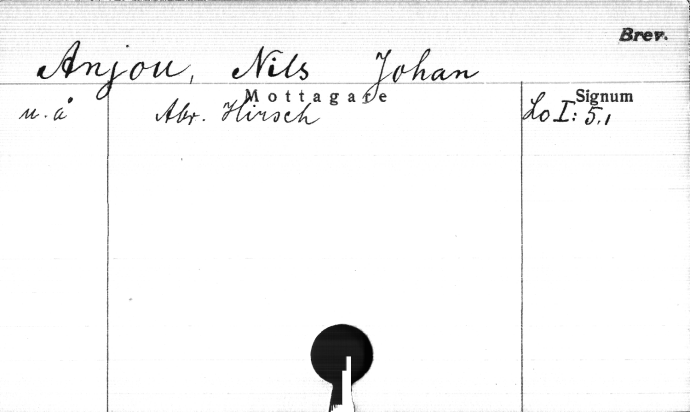 Brev.
Anjou, Nils Johan
Mottagare Signum
u. å Abr. Hirsch Lo I: 5,1